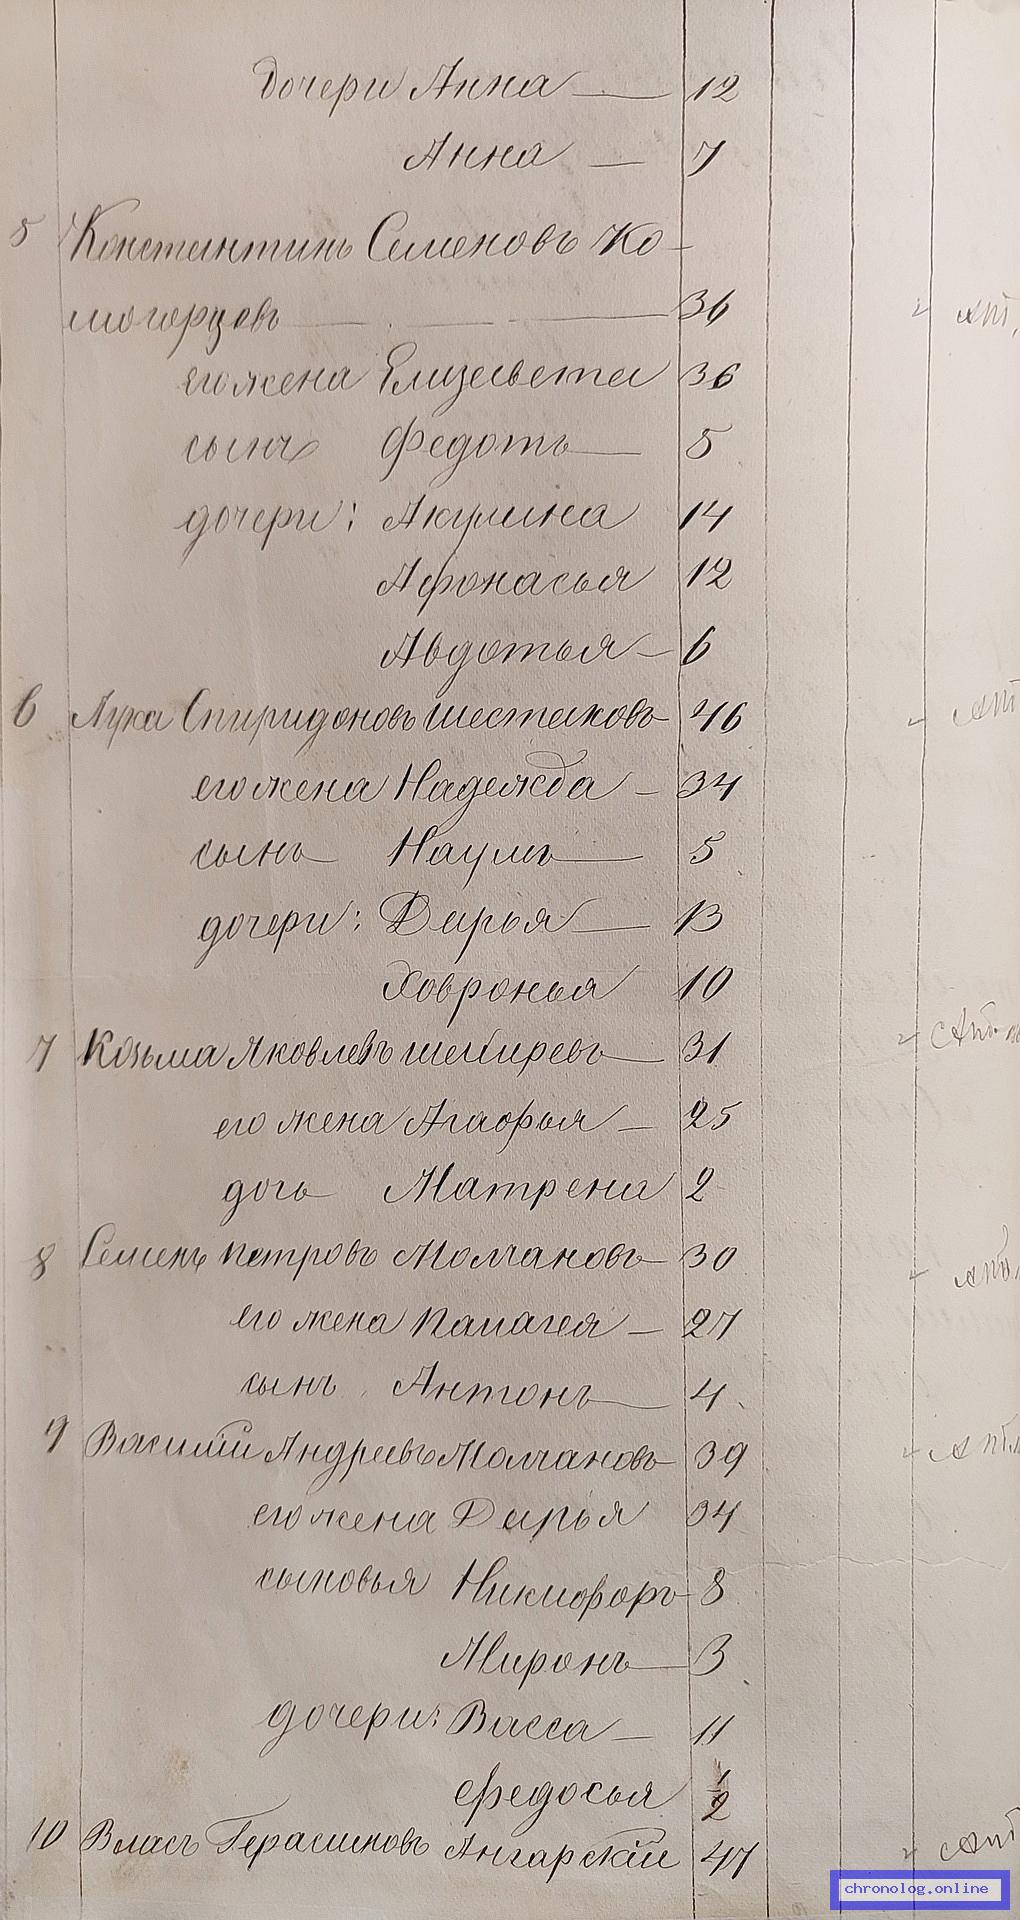 дочери Анна — 12
Анна — 7
5 Константинъ Семеновъ Ко-
могорцевъ — 36
его жена Елизавета 36
сынъ Федотъ — 5
дочери: Акулина 14
Афонасья 12
Авдотья — 6
6 Лука Спиридоновъ Шестаковъ 46
его жена Надежда — 34
сынъ Наумъ — 5
дочери: Дарья — 13
Ховронья 10
7 Козьма Яковлевъ — 31
его жена Агафья — 25
дочь Матрена 2
8 Семенъ Петровъ Молчановъ 30
его жена Палагея — 27
сынъ Антонъ — 4
9 Василий Андреевъ Молчановъ 39
его жена Дарья 34
сыновья Никифоръ 8
Миронъ — 3
дочери: Васса — 11
Федосья 1/2
10 Власъ Герасимовъ Ангарскій 47
chronolog.online